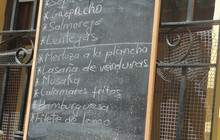 Gazpacho
Salmorejo
Lentejas
Merluza a la plancha
Lasaña de verduras
Musaka
Calamares fritos
Hamburguesa
Filete de lomo